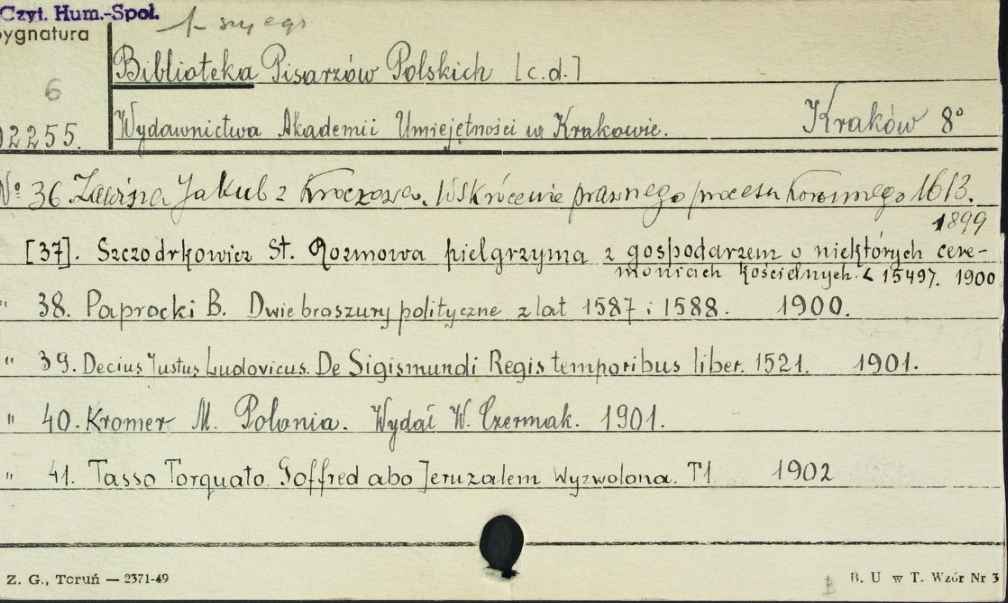 Czyt. Hum.-Społ.
ygnatura
Biblioteka Pisarzów Polskich [c.d.]
6
2255.
Wydawnictwa Akademii Umiejętności w Krakowie. Kraków 8°
№ 36 Zawisza Jakub z Kroczowa. Wskrócenie prawnego procesu koronnego 1613.
1899
[37]. Szczodrkowicz St. Rozmowa pielgrzyma z gospodarzem o niektórych cere-
moniach kościelnych. Z 15497. 1900
" 38. Paprocki B. Dwie broszury polityczne z lat 1587 i 1588. 1900.
" 39. Decius Justus Ludovicus. De Sigismundi Regis temporibus liber. 1521. 1901.
" 40. Kromer M. Polonia. Wydał W. Czermak. 1901.
" 41. Tasso Torquato Goffred abo Jeruzalem Wyzwolona. T1 1902
Z. G., Toruń — 2371-49
B. U w T. Wzór Nr 3